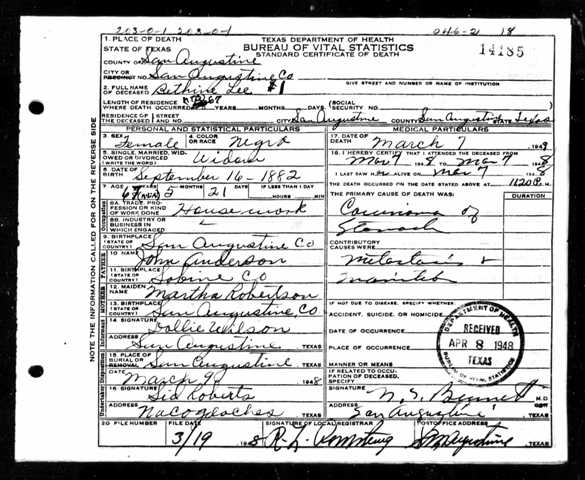 203-0-1 203-0-1 046-2 18
TEXAS DEPARTMENT OF HEALTH
BUREAU OF VITAL STATISTICS
STANDARD CERTIFICATE OF DEATH
14185
1. PLACE OF DEATH
STATE OF TEXAS
COUNTY OF San Augustine
CITY OR PRECINCT NO. San Augustine Co
GIVE STREET AND NUMBER OR NAME OF INSTITUTION
2. FULL NAME OF DECEASED Bethine Lee #1
LENGTH OF RESIDENCE WHERE DEATH OCCURRED 67 YEARS MONTHS DAYS (SOCIAL SECURITY NO.
RESIDENCE OF THE DECEASED STREET AND NO. CITY San Augustine COUNTY San Augustine STATE Texas
PERSONAL AND STATISTICAL PARTICULARS
3. SEX Female
4. COLOR OR RACE Negro
5. SINGLE, MARRIED, WIDOWED OR DIVORCED (WRITE) Widow
6. DATE OF BIRTH September 16-1882
7. AGE YEARS 5 MONTHS 21 DAYS IF LESS THAN 1 DAY HOURS MIN
8A. TRADE, PROFESSION OR KIND OF WORK DONE House work
8B. INDUSTRY OR BUSINESS IN WHICH ENGAGED
9. BIRTHPLACE (STATE OR COUNTRY) San Augustine Co
10. NAME John Anderson
11. BIRTHPLACE (STATE OR COUNTRY) Sabine Co
12. MAIDEN NAME Martha Robertson
13. BIRTHPLACE (STATE OR COUNTRY) San Augustine Co
14. SIGNATURE Dollie Wilson
ADDRESS San Augustine, TEXAS
15. PLACE OF BURIAL OR REMOVAL San Augustine TEXAS
DATE March 9 1948
16. SIGNATURE Sid Roberts
ADDRESS Nacogdoches TEXAS
MEDICAL PARTICULARS
17. DATE OF DEATH March 7 1948
18. I HEREBY CERTIFY THAT I ATTENDED THE DECEASED FROM Mar 7 1948 TO Mar 7 1948
I LAST SAW H ALIVE ON Mar 7 1948
THE DEATH OCCURRED ON THE DATE STATED ABOVE AT 1120P M.
THE PRIMARY CAUSE OF DEATH WAS: DURATION
Carcinoma of
Stomach
CONTRIBUTORY CAUSES WERE:
Metastasis &
IF NOT DUE TO DISEASE, SPECIFY WHETHER:
ACCIDENT, SUICIDE, OR HOMICIDE
DATE OF OCCURRENCE
PLACE OF OCCURRENCE
MANNER OR MEANS
IF RELATED TO OCCUPATION OF DECEASED, SPECIFY
SIGNATURE M.D.
ADDRESS San Augustine TEXAS
DEPARTMENT OF HEALTH
RECEIVED
APR 8 1948
TEXAS
BUREAU OF VITAL STATISTICS
20. FILE NUMBER FILE DATE 3/19 1948 SIGNATURE OF LOCAL REGISTRAR POSTOFFICE ADDRESS San Augustine TEXAS
NOTE THE INFORMATION CALLED FOR ON THE REVERSE SIDE